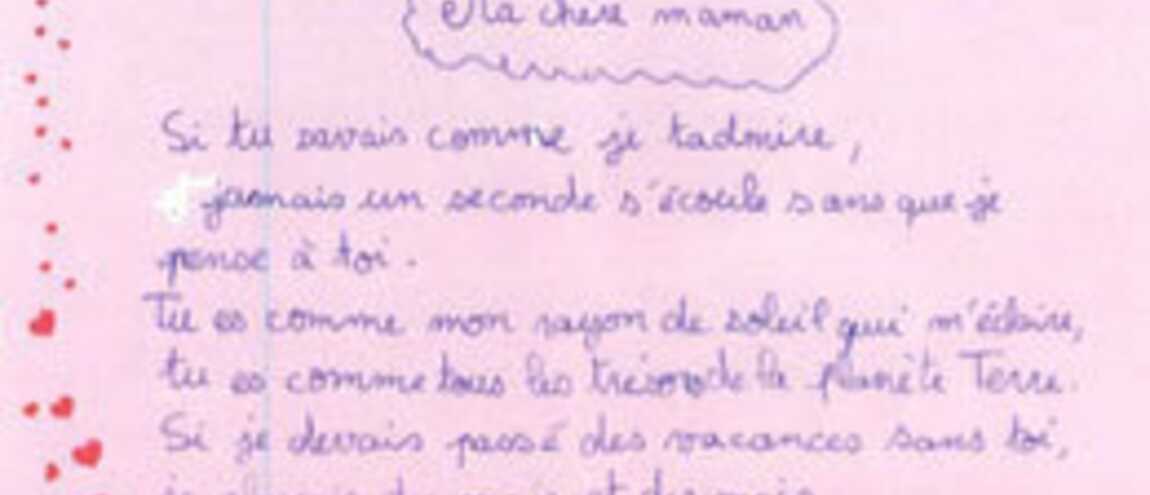 Ma chere maman
Si tu savais comme je tadmire,
jamais un seconde s'écoule sans que je
pense à toi.
Tu es comme mon rayon de soleil qui m'éclaire,
tu es comme tous les trésors de la planète Terre.
Si je devais passé des vacances sans toi,
et des mois